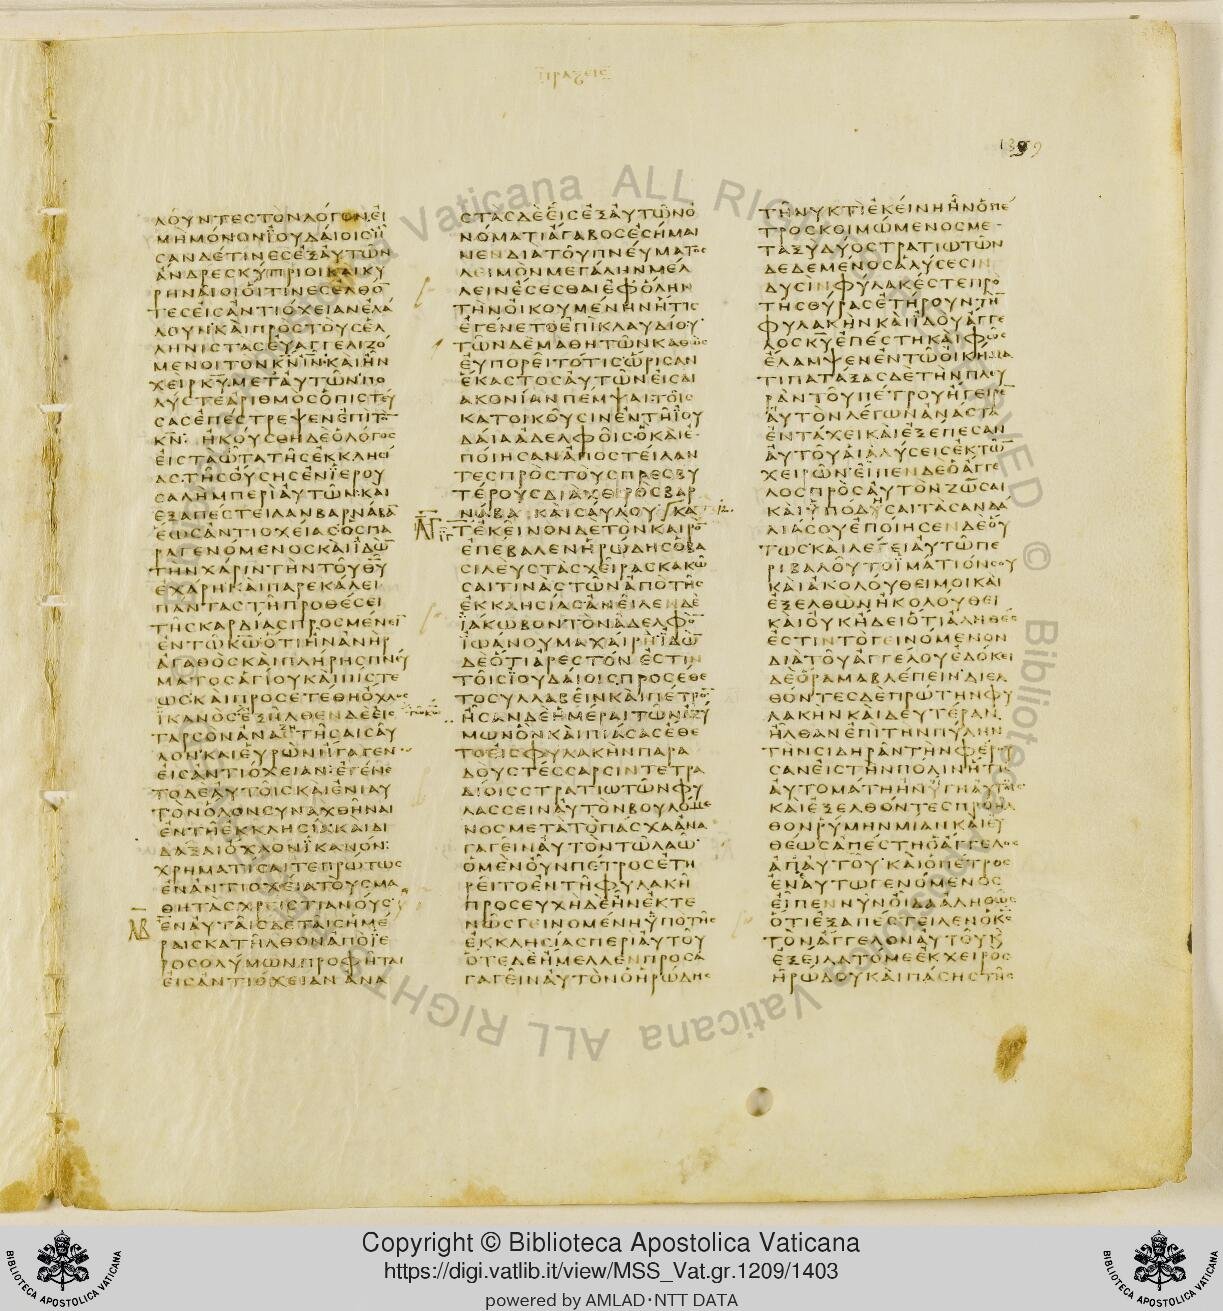 πράξεις
1399
ΛΟΥΝΤΕϹΤΟΝΛΟΓΟΝΕΙ
ΜΗΜΟΝΟΝΪΟΥΔΑΙΟΙϹΗ
ϹΑΝΔΕΤΙΝΕϹΕΞΑΥΤΩΝ
ΑΝΔΡΕϹΚΥΠΡΙΟΙΚΑΙΚΥ
ΡΗΝΑΙΟΙΟΙΤΙΝΕϹΕΛΘΟ̅
ΤΕϹΕΙϹΑΝΤΙΟΧΕΙΑΝΕΛΑ
ΛΟΥΝΚΑΙΠΡΟϹΤΟΥϹΕΛ
ΛΗΝΙϹΤΑϹΕΥΑΓΓΕΛΙΖΟ
ΜΕΝΟΙΤΟΝΚ̅Ν̅Ι̅Ν̅ΚΑΙΗΝ
ΧΕΙΡΚ̅Υ̅ΜΕΤΑΥΤΩΝΠΟ
ΛΥϹΤΕΑΡΙΘΜΟϹΟΠΙϹΤΕΥ
ϹΑϹΕΠΕϹΤΡΕΨΕΝΕΠΙΤΟ̅
Κ̅Ν̅ ΗΚΟΥϹΘΗΔΕΟΛΟΓΟϹ
ΕΙϹΤΑΩΤΑΤΗϹΕΚΚΛΗϹΙ
ΑϹΤΗϹΟΥϹΗϹΕΝΪΕΡΟΥ
ϹΑΛΗΜΠΕΡΙΑΥΤΩΝΚΑΙ
ΕΞΑΠΕϹΤΕΙΛΑΝΒΑΡΝΑΒΑ̅
ΕΩϹΑΝΤΙΟΧΕΙΑϹΟϹΠΑ
ΡΑΓΕΝΟΜΕΝΟϹΚΑΙΪΔΩ̅
ΤΗΝΧΑΡΙΝΤΗΝΤΟΥΘ̅Υ̅
ΕΧΑΡΗΚΑΙΠΑΡΕΚΑΛΕΙ
ΠΑΝΤΑϹΤΗΠΡΟΘΕϹΕΙ
ΤΗϹΚΑΡΔΙΑϹΠΡΟϹΜΕΝΕΙ̅
ΕΝΤΩΚ̅Ω̅ΟΤΙΗΝΑΝΗΡ
ΑΓΑΘΟϹΚΑΙΠΛΗΡΗϹΠΝΕΥ
ΜΑΤΟϹΑΓΙΟΥΚΑΙΠΙϹΤΕ
ΩϹΚΑΙΠΡΟϹΕΤΕΘΗΟΧΛΟϹ
ΪΚΑΝΟϹΕΞΗΛΘΕΝΔΕΕΙϹ
ΤΑΡϹΟΝΑΝΑϹΤΗϹΑΙϹΑΥ
ΛΟΝΚΑΙΕΥΡΩΝΗΓΑΓΕΝ
ΕΙϹΑΝΤΙΟΧΕΙΑΝΕΓΕΝΕ
ΤΟΔΕΑΥΤΟΙϹΚΑΙΕΝΙΑΥ
ΤΟΝΟΛΟΝϹΥΝΑΧΘΗΝΑΙ
ΕΝΤΗΕΚΚΛΗϹΙΑΚΑΙΔΙ
ΔΑΞΑΙΟΧΛΟΝΪΚΑΝΟΝ
ΧΡΗΜΑΤΙϹΑΙΤΕΠΡΩΤΩϹ
ΕΝΑΝΤΙΟΧΕΙΑΤΟΥϹΜΑ
ΘΗΤΑϹΧΡΕΙϹΤΙΑΝΟΥϹ
ΛΒ
ΕΝΑΥΤΑΙϹΔΕΤΑΙϹΗΜΕ
ΡΑΙϹΚΑΤΗΛΘΟΝΑΠΟΪΕ
ΡΟϹΟΛΥΜΩΝΠΡΟΦΗΤΑΙ
ΕΙϹΑΝΤΙΟΧΕΙΑΝΑΝΑ
ϹΤΑϹΔΕΕΙϹΕΞΑΥΤΩΝΟ
ΝΟΜΑΤΙΑΓΑΒΟϹΕϹΗΜΑΙ
ΝΕΝΔΙΑΤΟΥΠΝΕΥΜΑΤΟϹ
ΛΕΙΜΟΝΜΕΓΑΛΗΝΜΕΛ
ΛΕΙΝΕϹΕϹΘΑΙΕΦΟΛΗΝ
ΤΗΝΟΙΚΟΥΜΕΝΗΝΗΤΙϹ
ΕΓΕΝΕΤΟΕΠΙΚΛΑΥΔΙΟΥ
ΤΩΝΔΕΜΑΘΗΤΩΝΚΑΘΩϹ
ΕΥΠΟΡΕΙΤΟΤΙϹΩΡΙϹΑΝ
ΕΚΑϹΤΟϹΑΥΤΩΝΕΙϹΔΙ
ΑΚΟΝΙΑΝΠΕΜΨΑΙΤΟΙϹ
ΚΑΤΟΙΚΟΥϹΙΝΕΝΤΗΪΟΥ
ΔΑΙΑΑΔΕΛΦΟΙϹΟΚΑΙΕ
ΠΟΙΗϹΑΝΑΠΟϹΤΕΙΛΑΝ
ΤΕϹΠΡΟϹΤΟΥϹΠΡΕϹΒΥ
ΤΕΡΟΥϹΔΙΑΧΕΙΡΟϹΒΑΡ
ΝΑΒΑΚΑΙϹΑΥΛΟΥΚΑ
ΛΓ
ΤΕΚΕΙΝΟΝΔΕΤΟΝΚΑΙΡΟ̅
ΕΠΕΒΑΛΕΝΗΡΩΔΗϹΟΒΑ
ϹΙΛΕΥϹΤΑϹΧΕΙΡΑϹΚΑΚΩ
ϹΑΙΤΙΝΑϹΤΩΝΑΠΟΤΗϹ
ΕΚΚΛΗϹΙΑϹΑΝΕΙΛΕΝΔΕ
ΪΑΚΩΒΟΝΤΟΝΑΔΕΛΦΟ̅
ΪΩΑΝΟΥΜΑΧΑΙΡΗΪΔΩ̅
ΔΕΟΤΙΑΡΕϹΤΟΝΕϹΤΙΝ
ΤΟΙϹΪΟΥΔΑΙΟΙϹΠΡΟϹΕΘΕ
ΤΟϹΥΛΛΑΒΕΙΝΚΑΙΠΕΤΡΟ̅
ΗϹΑΝΔΕΗΜΕΡΑΙΤΩΝΑΖΥ
ΜΩΝΟΝΚΑΙΠΙΑϹΑϹΕΘΕ
ΤΟΕΙϹΦΥΛΑΚΗΝΠΑΡΑ
ΔΟΥϹΤΕϹϹΑΡϹΙΝΤΕΤΡΑ
ΔΙΟΙϹϹΤΡΑΤΙΩΤΩΝΦΥ
ΛΑϹϹΕΙΝΑΥΤΟΝΒΟΥΛΟΜΕ
ΝΟϹΜΕΤΑΤΟΠΑϹΧΑΑΝΑ
ΓΑΓΕΙΝΑΥΤΟΝΤΩΛΑΩ
ΟΜΕΝΟΥΝΠΕΤΡΟϹΕΤΗ
ΡΕΙΤΟΕΝΤΗΦΥΛΑΚΗ
ΠΡΟϹΕΥΧΗΔΕΗΝΕΚΤΕ
ΝΩϹΓΕΙΝΟΜΕΝΗΥΠΟΤΗϹ
ΕΚΚΛΗϹΙΑϹΠΕΡΙΑΥΤΟΥ
ΟΤΕΔΕΗΜΕΛΛΕΝΠΡΟϹΑ
ΓΑΓΕΙΝΑΥΤΟΝΟΗΡΩΔΗϹ
ΤΗΝΥΚΤΙΕΚΕΙΝΗΗΝΟΠΕ
ΤΡΟϹΚΟΙΜΩΜΕΝΟϹΜΕ
ΤΑΞΥΔΥΟϹΤΡΑΤΙΩΤΩΝ
ΔΕΔΕΜΕΝΟϹΑΛΥϹΕϹΙΝ
ΔΥϹΙΝΦΥΛΑΚΕϹΤΕΠΡΟ
ΤΗϹΘΥΡΑϹΕΤΗΡΟΥΝΤΗ̅
ΦΥΛΑΚΗΝΚΑΙΪΔΟΥΑΓΓΕ
ΛΟϹΚ̅Υ̅ΕΠΕϹΤΗΚΑΙΦΩϹ
ΕΛΑΜΨΕΝΕΝΤΩΟΙΚΗΜΑ
ΤΙΠΑΤΑΞΑϹΔΕΤΗΝΠΛΕΥ
ΡΑΝΤΟΥΠΕΤΡΟΥΗΓΕΙΡΕ̅
ΑΥΤΟΝΛΕΓΩΝΑΝΑϹΤΑ
ΕΝΤΑΧΕΙΚΑΙΕΞΕΠΕϹΑΝ
ΑΥΤΟΥΑΙΑΛΥϹΕΙϹΕΚΤΩ̅
ΧΕΙΡΩΝΕΙΠΕΝΔΕΟΑΓΓΕ
ΛΟϹΠΡΟϹΑΥΤΟΝΖΩϹΑΙ
ΚΑΙΫΠΟΔΗϹΑΙΤΑϹΑΝΔΑ
ΛΙΑϹΟΥΕΠΟΙΗϹΕΝΔΕΟΥ
ΤΩϹΚΑΙΛΕΓΕΙΑΥΤΩΠΕ
ΡΙΒΑΛΟΥΤΟΪΜΑΤΙΟΝϹΟΥ
ΚΑΙΑΚΟΛΟΥΘΕΙΜΟΙΚΑΙ
ΕΞΕΛΘΩΝΗΚΟΛΟΥΘΕΙ
ΚΑΙΟΥΚΗΔΕΙΟΤΙΑΛΗΘΕϹ
ΕϹΤΙΝΤΟΓΕΙΝΟΜΕΝΟΝ
ΔΙΑΤΟΥΑΓΓΕΛΟΥΕΔΟΚΕΙ
ΔΕΟΡΑΜΑΒΛΕΠΕΙΝΔΙΕΛ
ΘΟΝΤΕϹΔΕΠΡΩΤΗΝΦΥ
ΛΑΚΗΝΚΑΙΔΕΥΤΕΡΑΝ
ΗΛΘΑΝΕΠΙΤΗΝΠΥΛΗΝ
ΤΗΝϹΙΔΗΡΑΝΤΗΝΦΕΡΟΥ
ϹΑΝΕΙϹΤΗΝΠΟΛΙΝΗΤΙϹ
ΑΥΤΟΜΑΤΗΗΝΥΓΗΑΥΤΟΙϹ
ΚΑΙΕΞΕΛΘΟΝΤΕϹΠΡΟΗΛ
ΘΟΝΡΥΜΗΝΜΙΑΝΚΑΙΕΥ
ΘΕΩϹΑΠΕϹΤΗΟΑΓΓΕΛΟϹ
ΑΠΑΥΤΟΥΚΑΙΟΠΕΤΡΟϹ
ΕΝΑΥΤΩΓΕΝΟΜΕΝΟϹ
ΕΙΠΕΝΝΥΝΟΙΔΑΑΛΗΘΩϹ
ΟΤΙΕΞΑΠΕϹΤΕΙΛΕΝΟΚ̅Ϲ̅
ΤΟΝΑΓΓΕΛΟΝΑΥΤΟΥΚ
ΕΞΕΙΛΑΤΟΜΕΕΚΧΕΙΡΟϹ
ΗΡΩΔΟΥΚΑΙΠΑϹΗϹΤΗϹ
Copyright © Biblioteca Apostolica Vaticana
https://digi.vatlib.it/view/MSS_Vat.gr.1209/1403
powered by AMLAD･NTT DATA
BIBLIOTECA APOSTOLICA VATICANA
BIBLIOTECA APOSTOLICA VATICANA